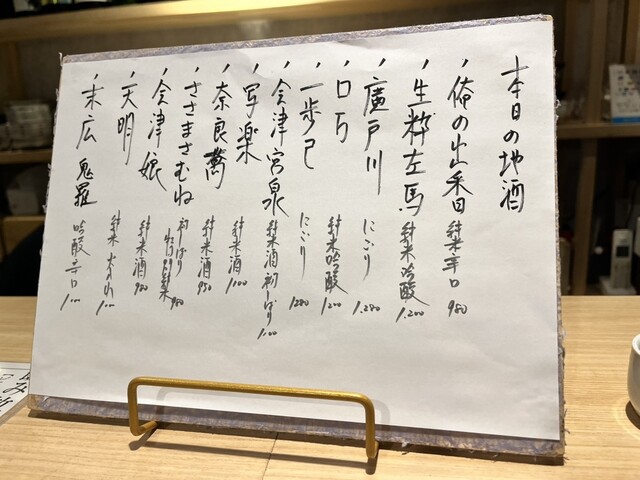 本日の地酒
、俺の出番 純米辛口 980
、生粋左馬 純米吟醸 1.200
、廣戸川 にごり 1.280
、ロ万 純米吟醸 1200
、一歩己 にごり 1280
、会津宮泉 純米酒 初しぼり 1.100
、写楽 純米酒 1100
、奈良萬 純米酒 950
、ささまさむね 初しぼり 980
、会津娘 純米酒 980
、天明 純米
、末広 鬼羅 吟醸 辛口